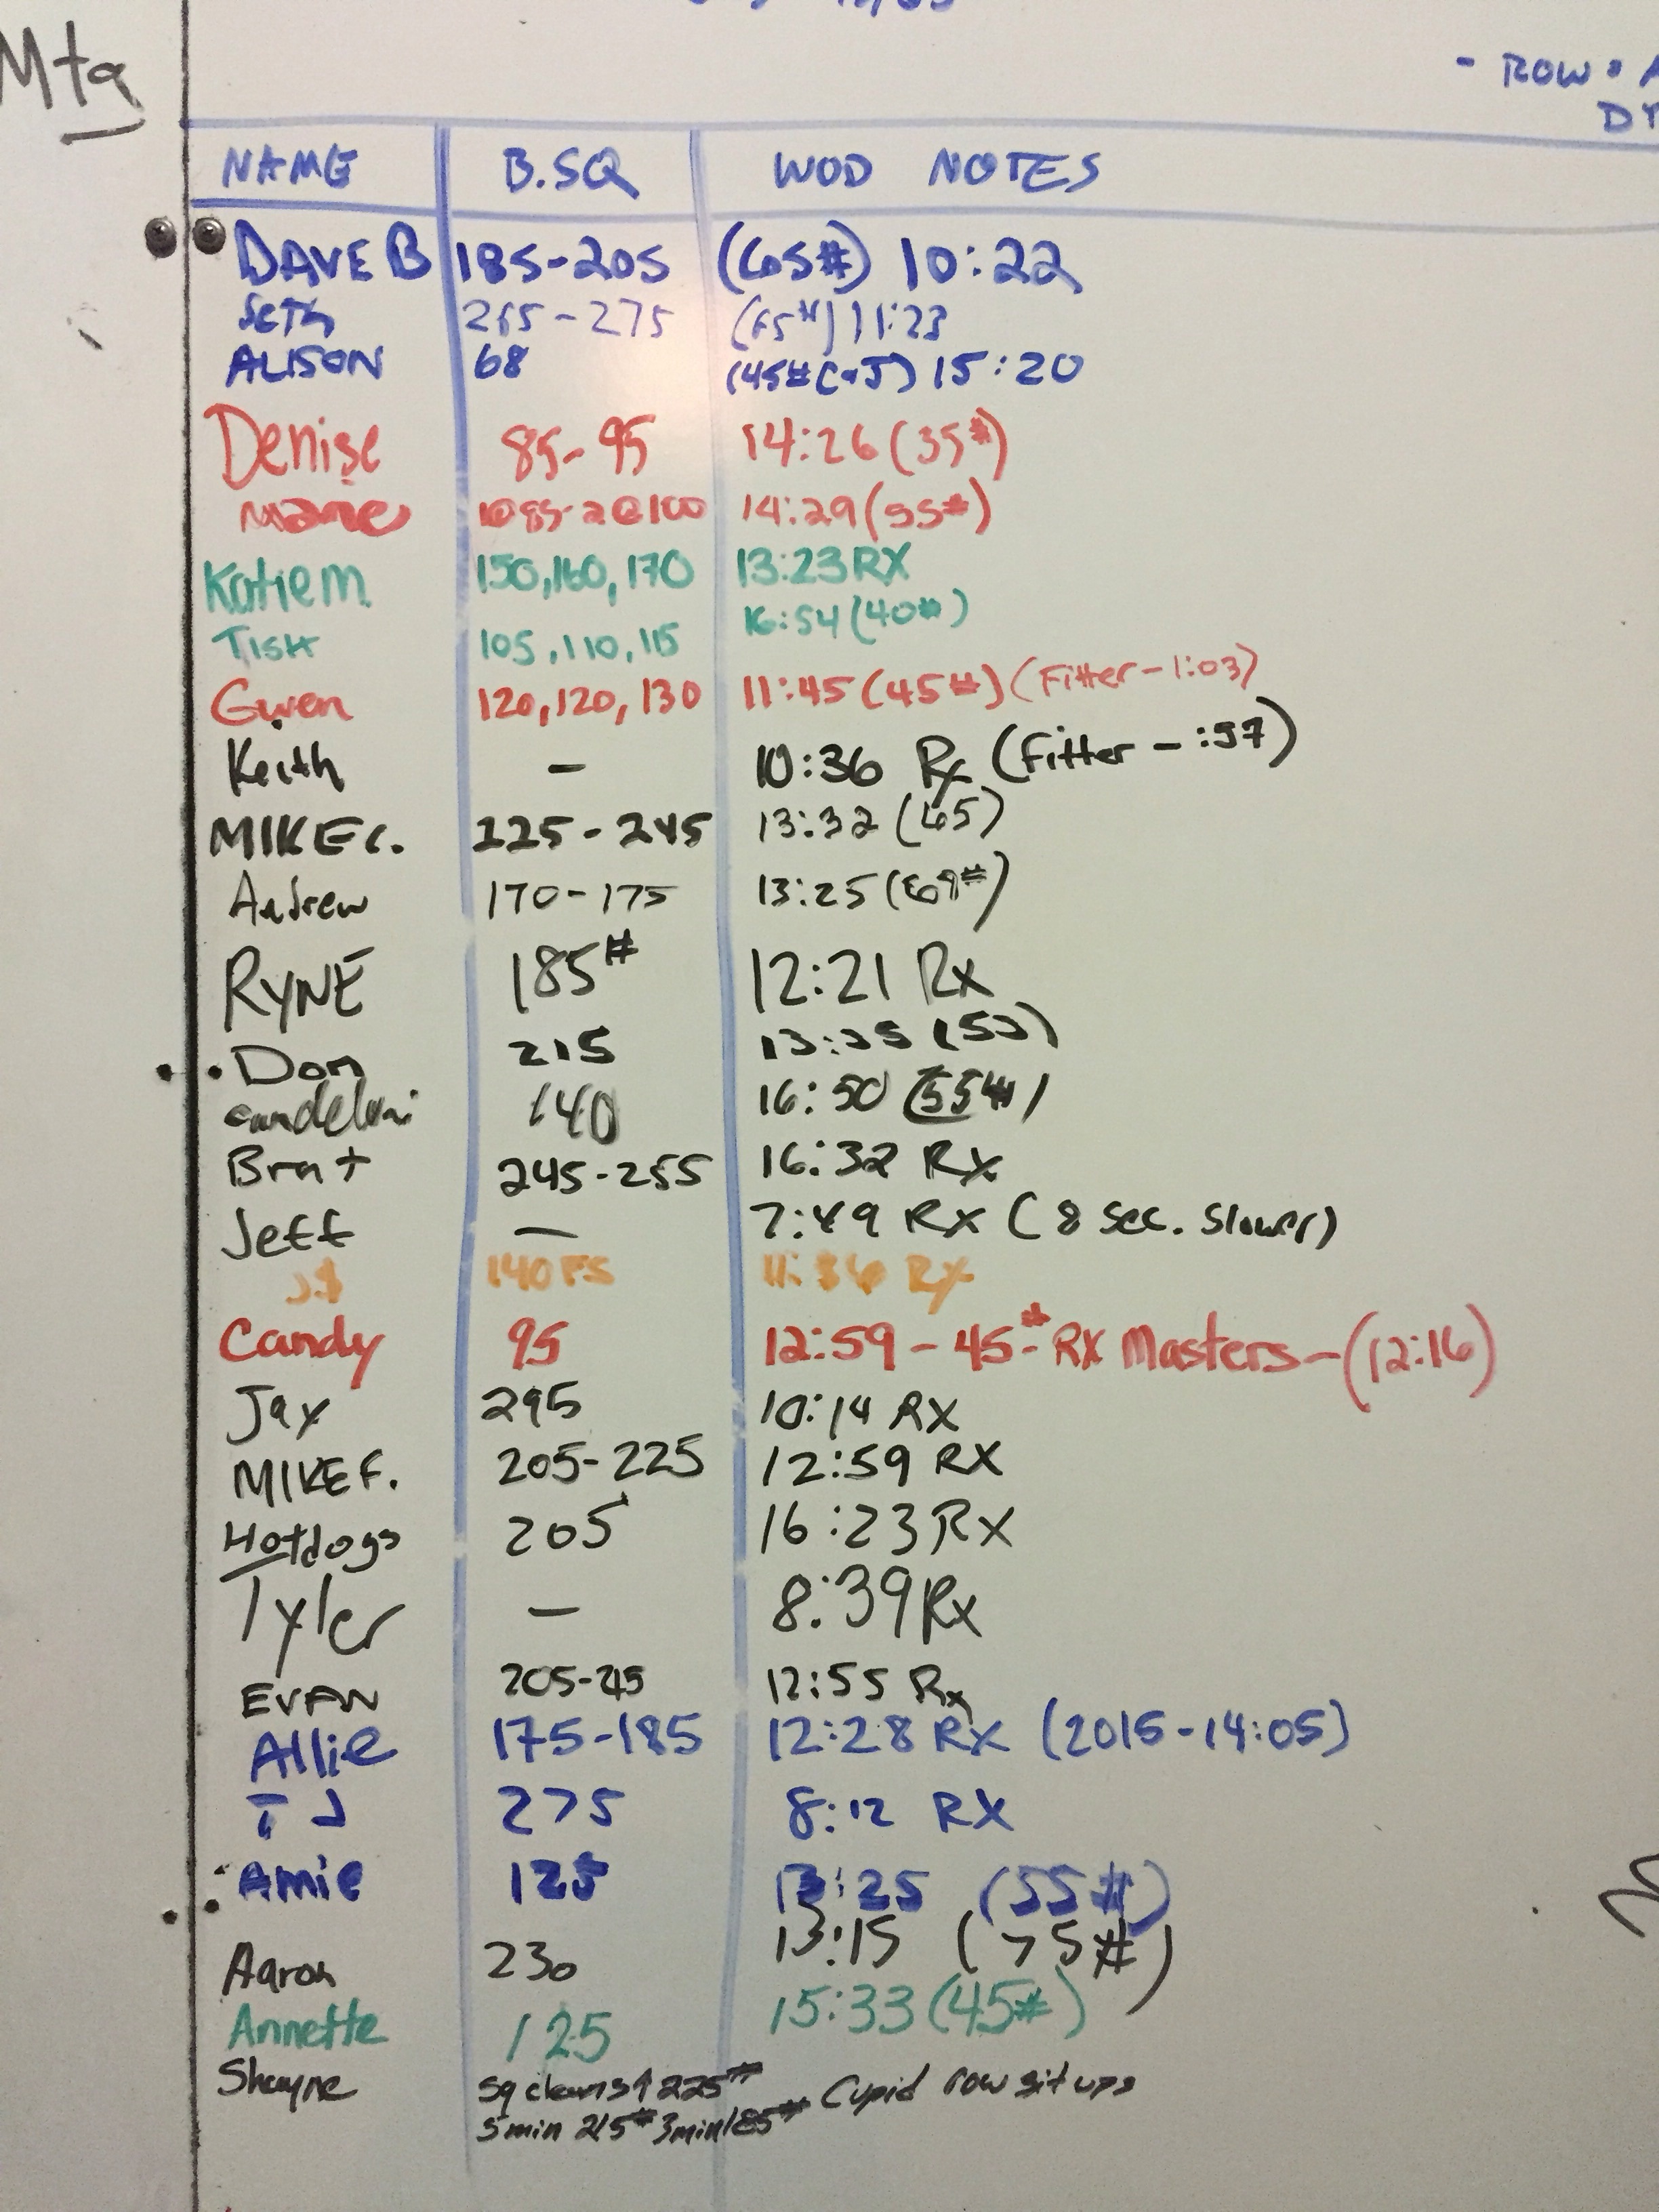 Mtg
- ROW
NAME B.SQ WOD NOTES
DAVE B 185-205 (65#) 10:22
Seth 265-275 (65#) 11:23
ALISON 68 (45# C+J) 15:20
Denise 85-95 14:26 (35#)
85-2@100 14:29 (55#)
Katie m 150,160,170 13:23 RX
Tish 105,110,115 16:54 (40#)
Gwen 120,120,130 11:45 (45#) (Fitter-1:03)
Keith - 10:36 Rx (Fitter - :57)
MIKE C. 225-245 13:32 (65)
Andrew 170-175 13:25 (69#)
RYNE 185# 12:21 Rx
Don 215 13:35 (53)
140 16:50 (55#)
Brent 245-255 16:32 Rx
Jeff - 7:49 Rx (8 sec. slower)
J$ 140 FS 11:36 Rx
Candy 95 12:59 - 45#- RX Masters - (12:16)
Jay 295 10:14 RX
MIKE F. 205-225 12:59 RX
Hotdogs 205 16:23 Rx
Tyler - 8:39 Rx
EVAN 205-215 12:55 Rx
Allie 175-185 12:28 RX (2015-14:05)
TJ 275 8:12 RX
Amie 125 13:25 (55#)
Aaron 230 13:15 (75#)
Annette 125 15:33 (45#)
Shayne sq cleans↑225# Cupid row sit ups
5min 215# 3min 185#